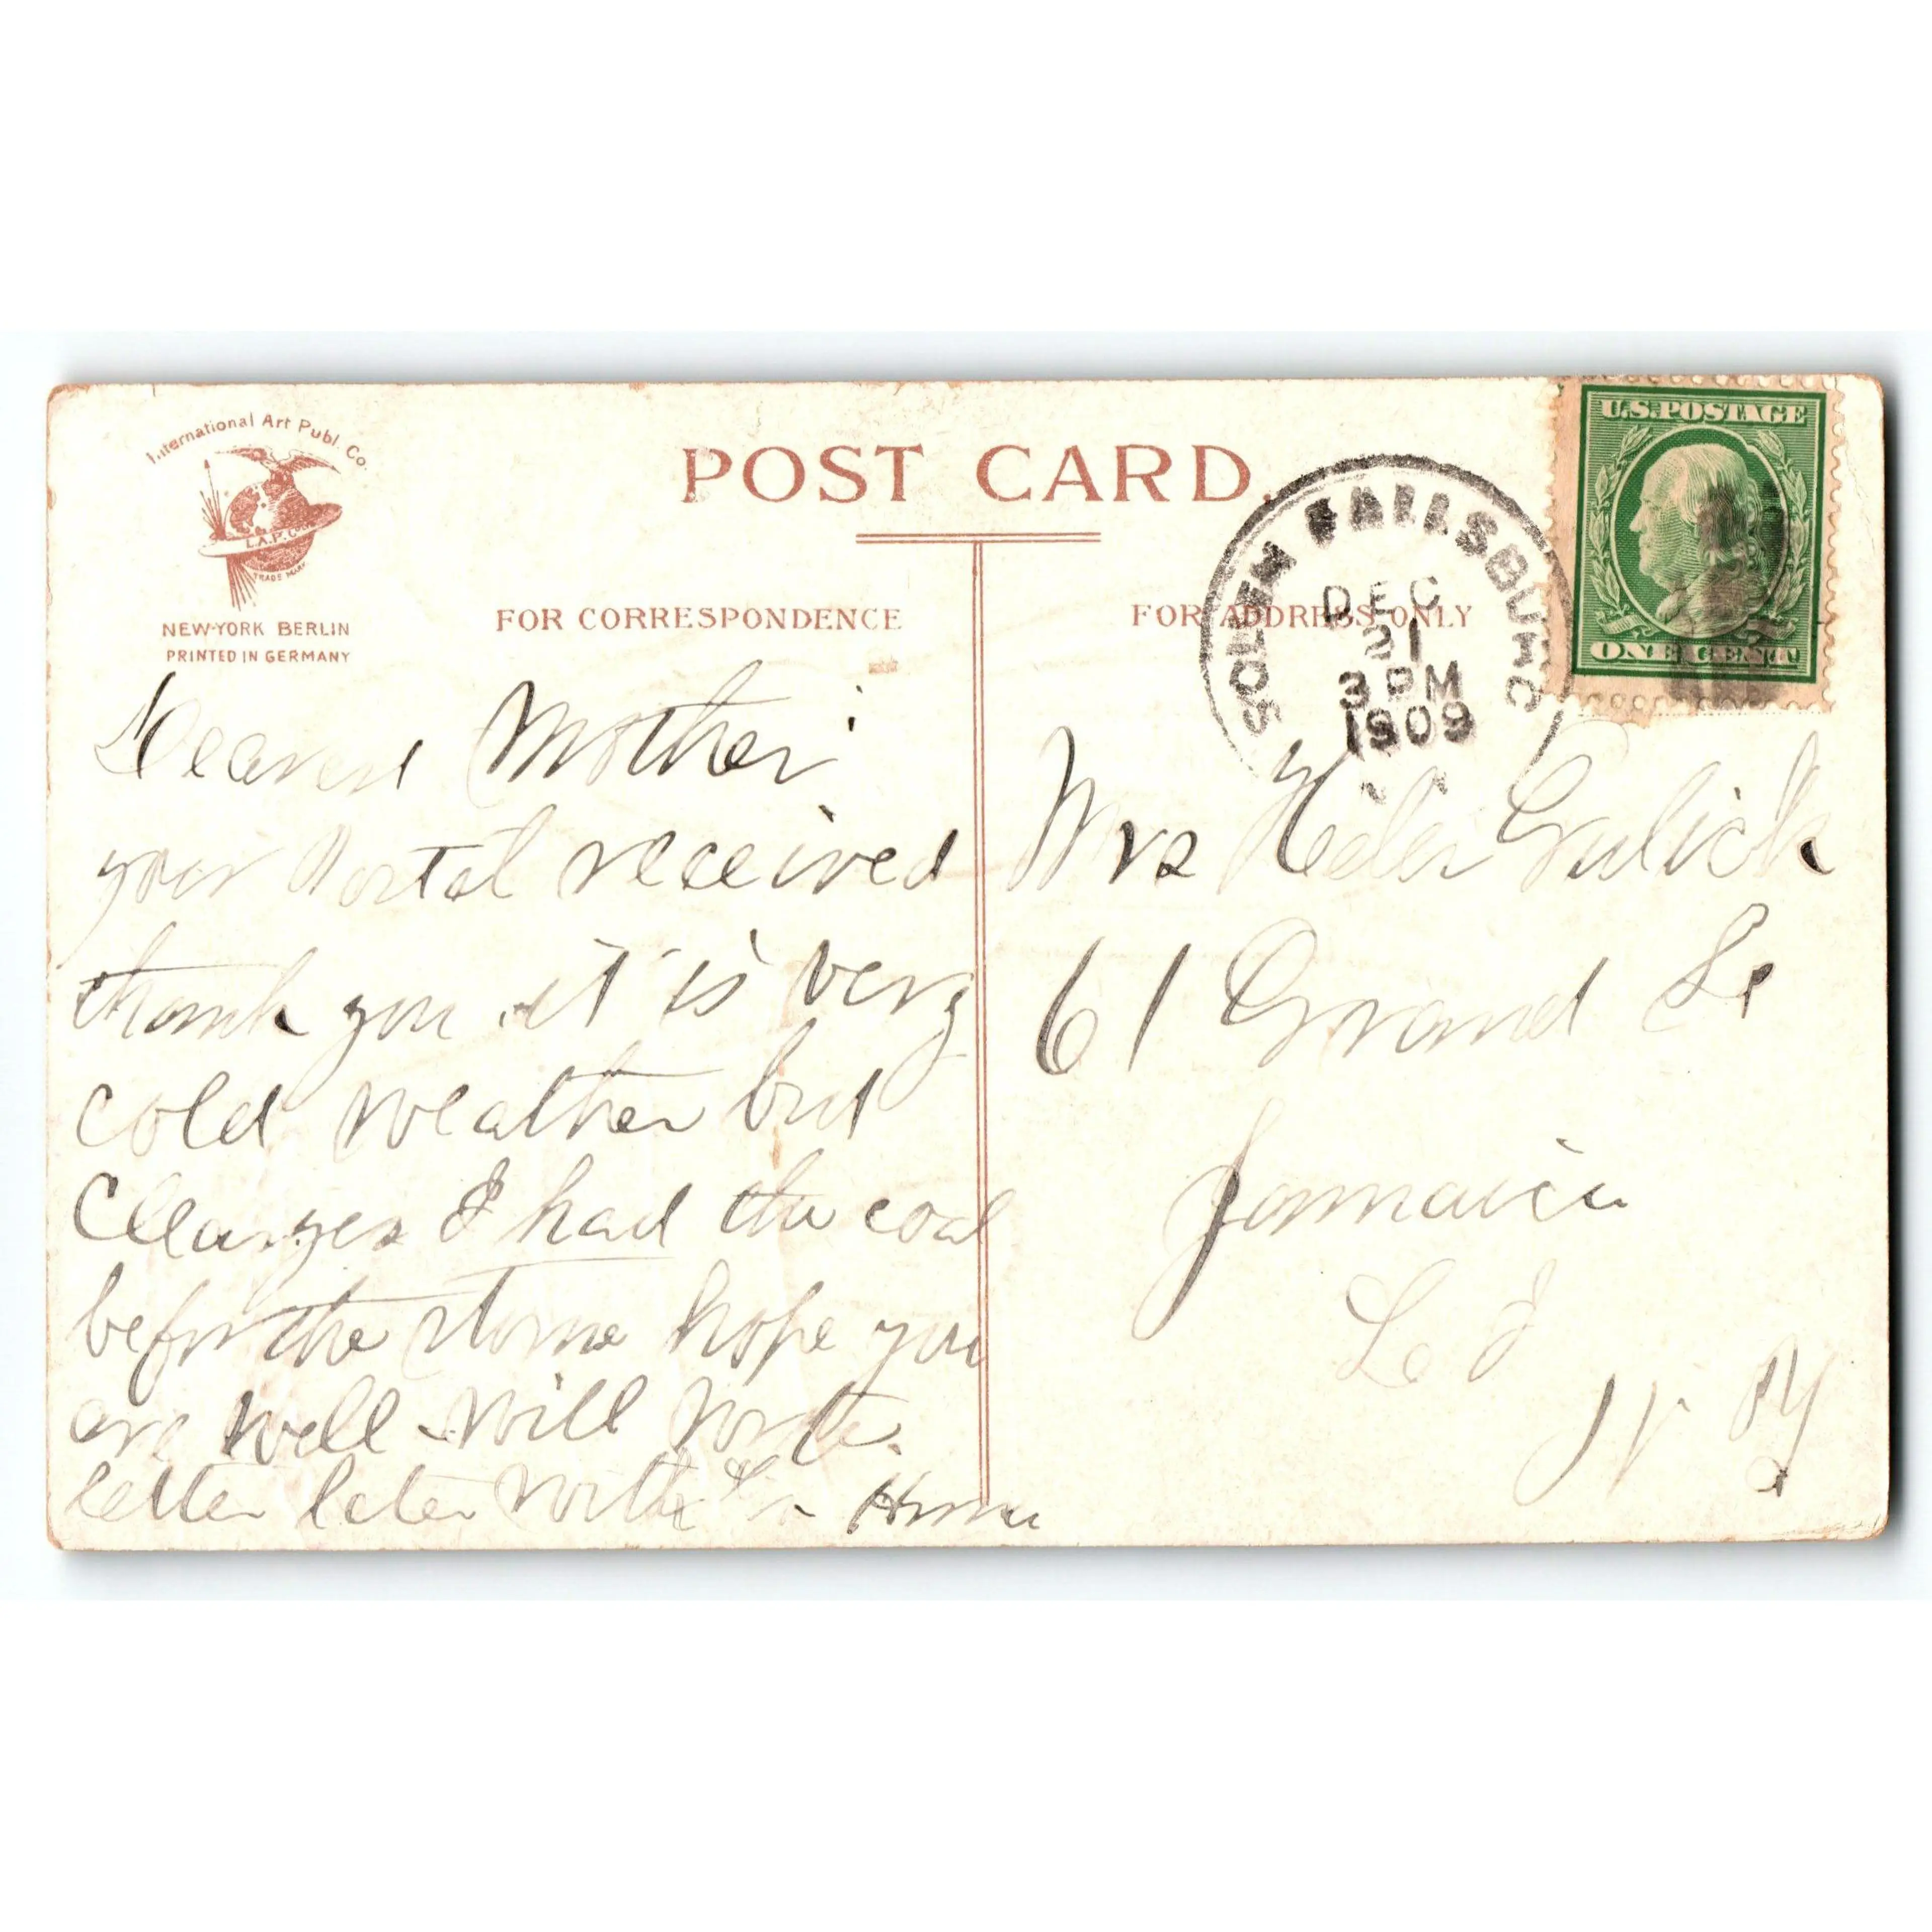 International Art Publ. Co.
I.A.P.C.
TRADE MARK
NEW-YORK BERLIN
PRINTED IN GERMANY
POST CARD.
FOR CORRESPONDENCE
FOR ADDRESS ONLY
SOUTH FALLSBURG
DEC
21
3 PM
1909
U.S. POSTAGE
ONE CENT
Dearest Mother
your Postal received
thank you it is very
cold weather but
had the coal
before the storme hope you
are well will write
letter later with
Mrs Gulick
61 Grand St
Jamaica
L I
N Y